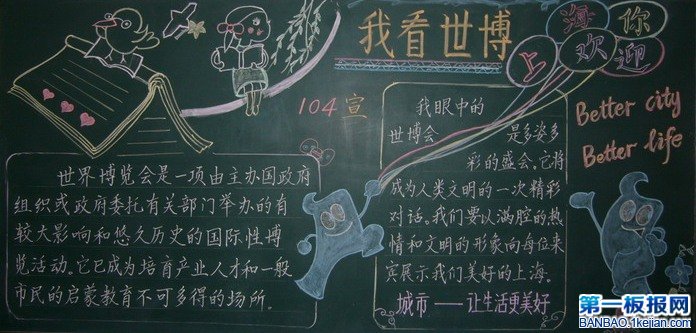 我看世博
上海欢迎你
104宣
Better city
Better life
世界博览会是一项由主办国政府
组织或政府委托有关部门举办的有
较大影响和悠久历史的国际性博
览活动。它已成为培育产业人才和一般
市民的启蒙教育不可多得的场所。
我眼中的
世博会 是多姿多
彩的盛会,它将
成为人类文明的一次精彩
对话。我们要以满腔的热
情和文明的形象向每位来
宾展示我们美好的上海。
城市——让生活更美好
第一板报网
BANBAO.1kejian.com